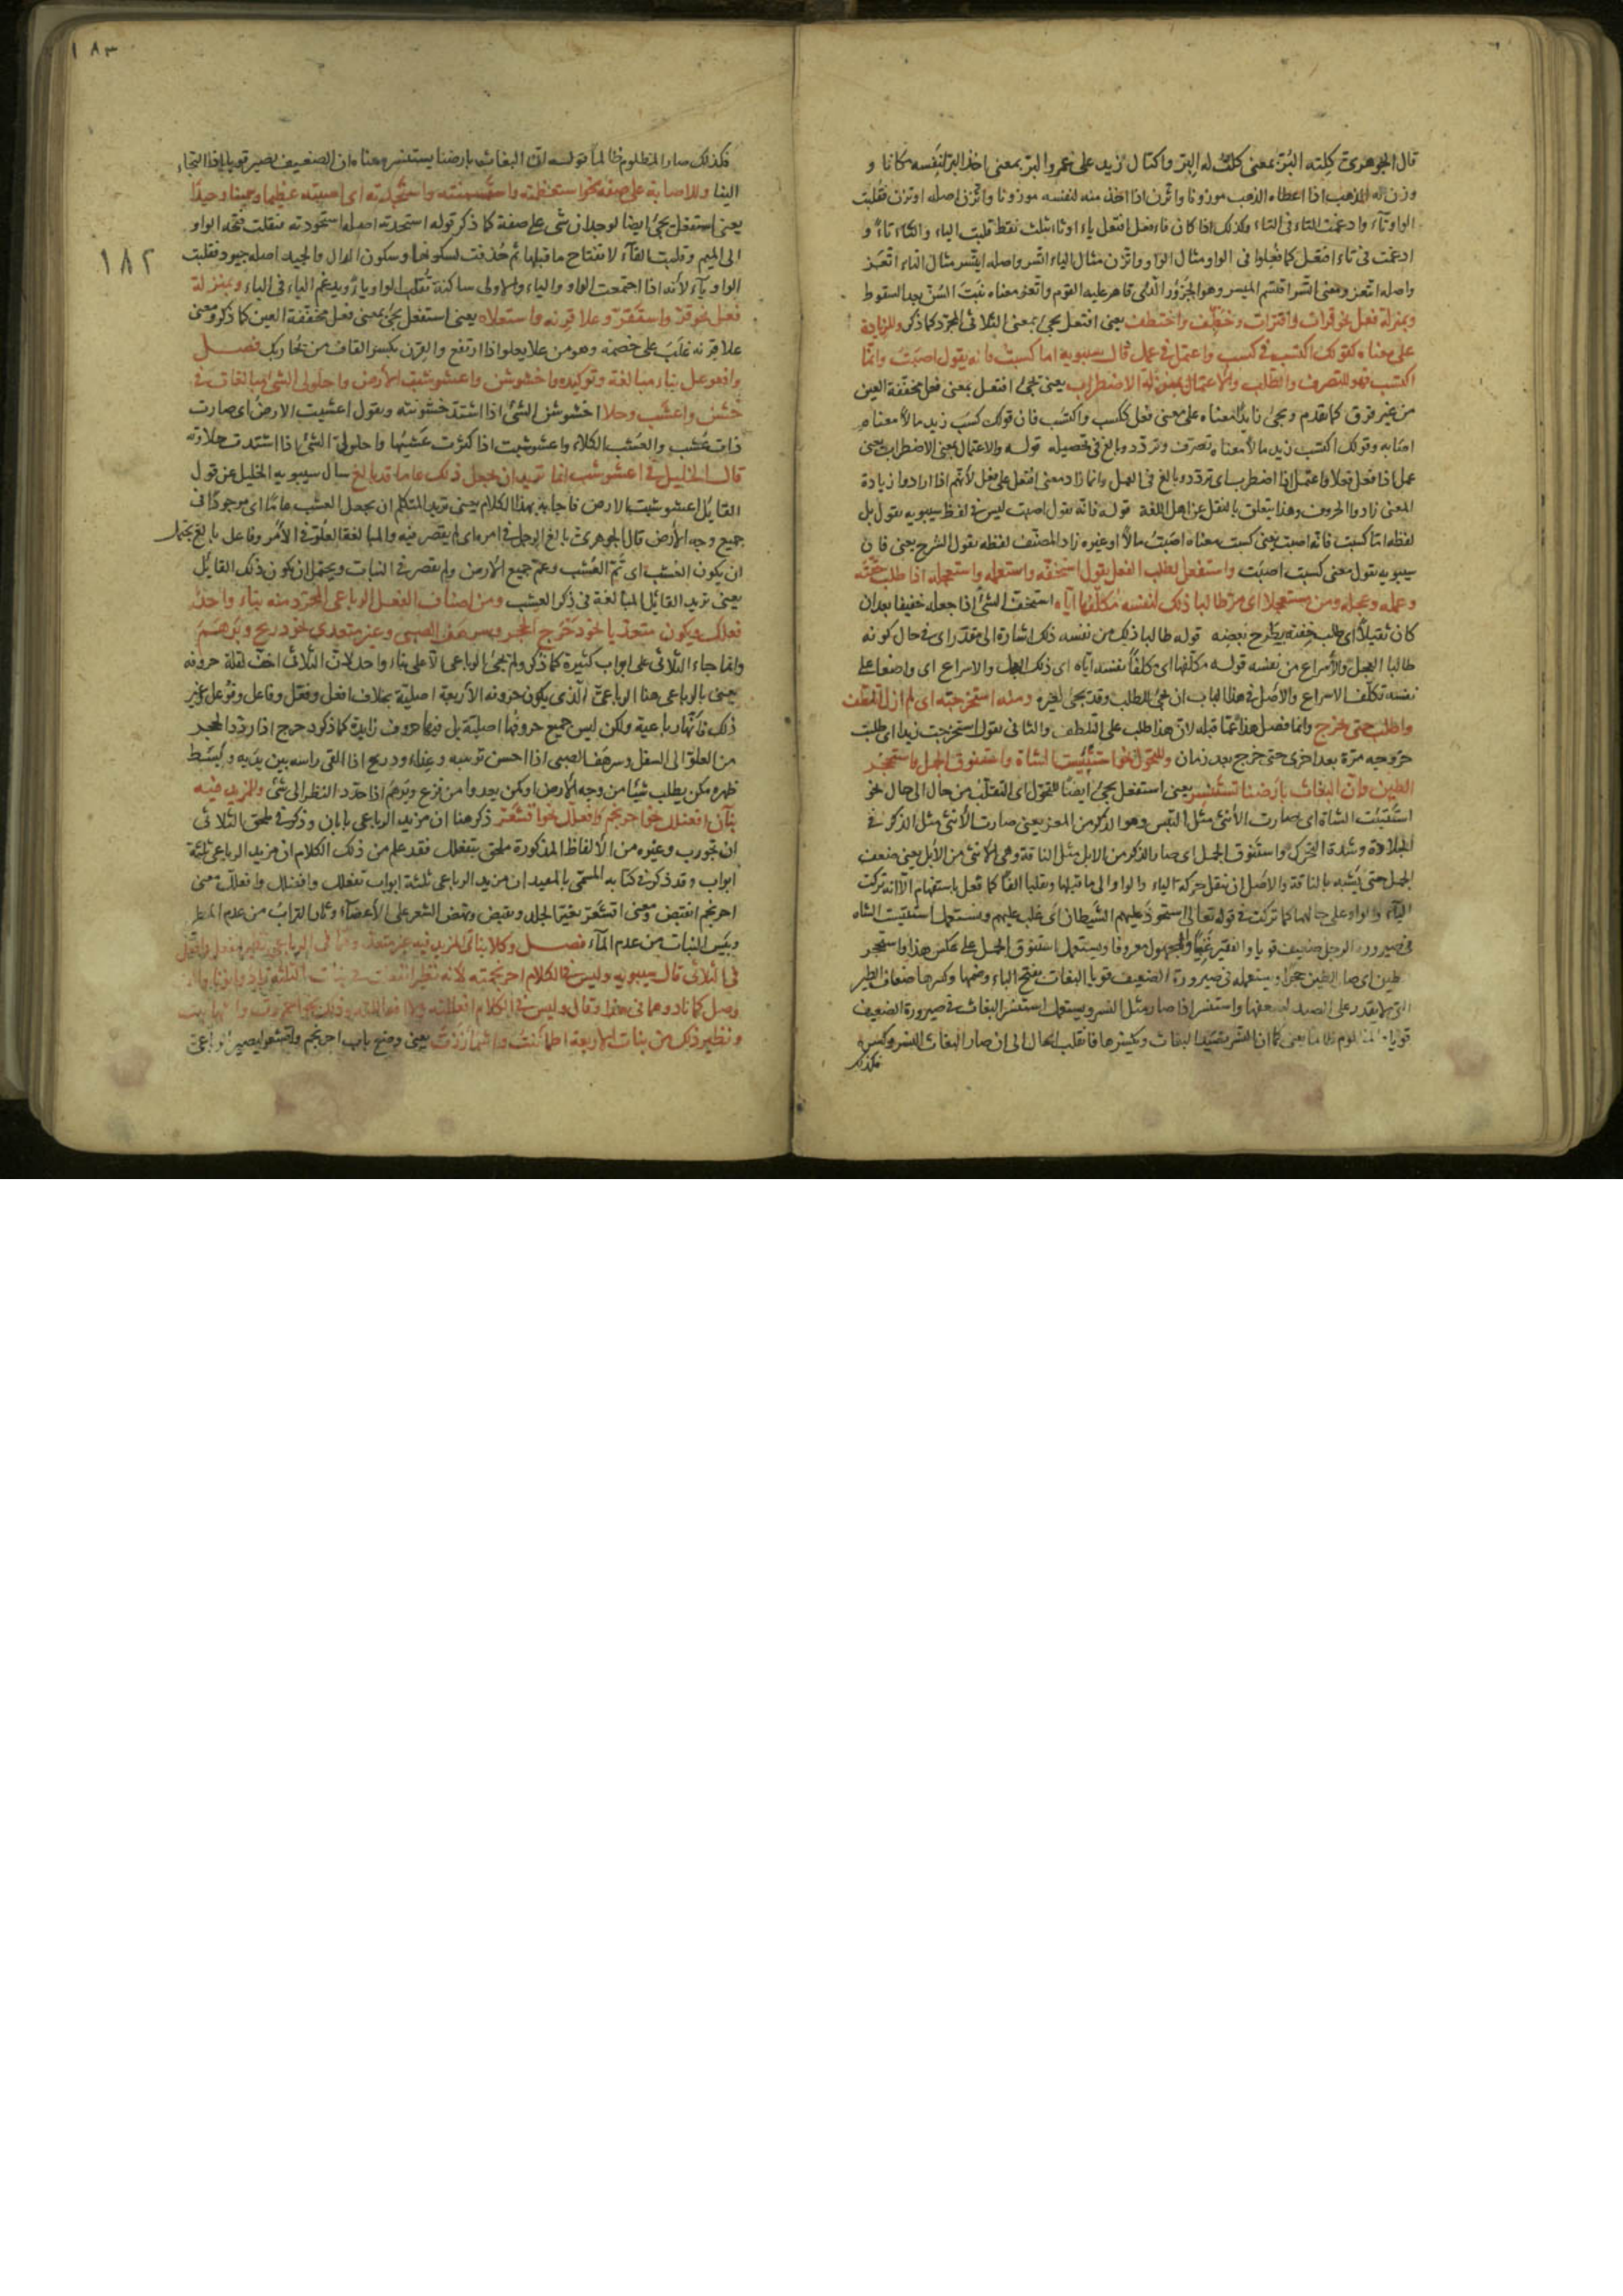 قال الجوهري كِلته البُرّ بمعنى كلتُ له البرّ واكتال زيد على عمرو البر بمعنى اخذ البر لنفسه مكانا و
وزن له الذهب اذا اعطاه الذهب موزونا واتّزن اذا اخذ منه لنفسه موزونا واتّزن اصله اوتزن فقلبت
الواو تآء وادغمت التاء فى التاء وكذلك اذا كان فاء فعل افتعل ياء او ثاء بثلث نقط قلبت الياء والثاء تاءً و
ادغمت فى تاء افتعل كما فعلوا فى الواو مثال الواو واتّزن مثال الياء اتّسر واصله ايتسر مثال الثاء اتّغر
واصله اثتغر ومعنى اتّسر اقتسم الميسر وهو الجَزُور الّتى قامر عليه القوم واتّغر معناه نَبَتَ السِّنّ بعد السقوط
وبمنزلة فعل نحو قرأت واقترأت وخطف واختطف يعنى افتعل يجئ بمعنى الثلاثى المجرّد كما ذكر وللزيادة
على معناه كقولك اكتسب فى كسب واعتمل فى عمل قال سيبويه اما كسبت فانه يقول اصبت وامّا
اكتسب فهو للتصرف والطلب والاعتمال بمنزلة الاضطراب يعنى يجئ افتعل بمعنى فعل مخفّفة العين
من غير فرق كما تقدم ويجئ زايدًا معناه على معنى فعل ككسب واكتسب فان قولك كسب زيد مالاً معناه
اصابه وقولك اكتسب زيد مالاً معناه تصرّف وتردّد وبالغ فى تحصيله قوله والاعتمال بمعنى الاضطراب يعنى
عمل اذا فعل فعلا واعتمل اذا اضطرب اى تردّد وبالغ فى العمل وانما زاد معنى افتعل على فعل لأنهم اذا ارادوا زيادة
المعنى زادوا الحروف وهذا يتعلق بالنقل عن اهل اللغة قوله فانه يقول اصبت ليس فى لفظ سيبويه يقول بل
لفظه امّا كسبت فانه اصبت يعنى كسبت معناه اصبتُ مالاً او غيره زاد المصنّف لفظه يقول للشرح يعنى فان
سيبويه يقول معنى كسبت اصبت واستفعل لطلب الفعل يقول استخفّه واستعمله واستعجله اذا طلب خفّته
وعمله وعجله ومن مستعجلا اى مرّ طالبا ذلك لنفسه مكلّفها ايّاه استخفّ الشئ اذا جعله خفيفا بعد ان
كان ثقيلاً اى طلب خفته بطرح بعضه قوله طالبا ذلك من نفسه ذلك اشارة الى مقدّر اى فى حال كونه
طالبا العجلَ والاسراع من نفسه قوله مكلّفها اى مكلّفًا نفسه ايّاه اى ذلك العجل والاسراع اى واضعا على
نفسه تكلّف الاسراع والاصل فى هذا الباب ان يجئ للطلب وقد يجئ لغيره ومنه استخرجته اى لم ازل اتلطّف
واطلب حتى خرج وانما فصل هذا عمّا قبله لانّ هذا طلب على التلطف والثانى تقول استخرجت زيدا اى طلبت
خروجه مرّة بعد اخرى حتى خرج بعد زمان وللتحوّل نحو استتيست الشاة واستنوق الجمل واستحجر
الطين وانّ البغاث بارضنا تستنسر يعنى استفعل يجئ ايضًا للتحوّل اى التقلّب من حال الى حال نحو
استتيست الشاة اى صارت الأنثى مثل التيس وهو الذكر من المعز يعنى صارت الأنثى مثل الذكر فى
الجلادة وشدة التحرك واستنوق الجمل اى صار الذكر من الابل مثل الناقة وهى الانثى من الأبل يعنى ضعف
الجمل حتى يُشبه بالناقة والاصل ان تنقل حركة الياء والواو الى ما قبلها وتقلبا الفًا كما فعل باستهام الا انه تركت
الياء والواو على حالهما كما تركت فى قوله تعالى استحوذ عليهم الشّيطان اى غلب عليهم ويستعمل استتيست الشاة
فى صيرورة الرجل ضعيف قويا والفقير غنيًّا والمجهول معروفا ويستعمل استنوق الجمل على عكس هذا واستحجر
طين اى صار الطين حجرًا ويستعمله فى صيرورة الضعيف قويا البغاث بفتح الباء وضمها وكسرها ضعاف الطير
التى لا يقدر على الصيد لضعفها واستنسر اذا صار مثل النسر ويستعمل استنسر البغاث فى صيرورة الضعيف
قويا والمظلوم ظالما يعنى كما ان النسر يصيد البغاث ويكسرها فانقلب الحال الى ان صار البغاث النسر وكسره
فكذلك
١٨٣
١٨٢
فكذلك صار المظلوم ظالماً قوله انّ البغاث بارضنا يستنسر معناه ان الضعيف يصير قويا اذا التجاء
الينا وللاصابة على صفة نحو استعظمته واستسمنته واستجدته اى اصبته عظيما وسمينا وجيدًا
يعنى استفعل يجئ ايضا لوجدان شئ على صفة كما ذكر قوله استجدته اصله استجودته فنقلت فتحة الواو
الى الجيم وقلبت الفآءً لانفتاح ما قبلها ثم حُذفت لسكونها وسكون الدال والجيد اصله جيود فقلبت
الواو ياءً لأنه اذا اجتمعت الواو والياء والاولى ساكنة تُقلب الواو ياءً ويدغم الياء فى الياء وبمنزلة
فعل نحو قرّ واستقرّ وعلا قرنه واستعلاه يعنى استفعل يجئ بمعنى فعل مخفّفة العين كما ذكر ومعنى
علا قرنه غلَبَ على خصمه وهو من علا يعلو اذا ارتفع والقرن بكسر القاف من يُحاربك فصل
وافعوعل بناء مبالغة وتوكيد واخشوشن واعشوشبت الأرض واحلولى الشئ مبالغات فى
خَشُن واعشبت وحلا اخشوشن الشئ اذا اشتدّ خشونته ويقول اعشبت الارض اى صارت
ذات عُشب والعُشب الكلاء واعشوشبت اذا كثرت عُشبُها واحلولى الشئ اذا اشتدت حلاوته
قال الخليل فى اعشوشب انما تريد ان يجعل ذلك عاما قد بالغ سأل سيبويه الخليل عن قول
القايل اعشوشبت الارض فاجابه بهذا الكلام يعنى تريد المتكلم ان يجعل العشب عامًّا اى موجودًا فى
جميع وجه الأرض قال الجوهرى بالغ الرجل فى امره اى لم يقصر فيه والمبالغة العُلوّ فى الأمر وفاعل بالغ يحتمل
ان يكون العُشب اى تمّ العُشب وعمّ جميع الأرض ولم يقصر فى النبات ويحتمل ان يكون ذلك القايل
يعنى تريد القائل المبالغة فى ذكر العشب ومن اصناف الفعل الرباعى للمجرّد منه بناءٌ واحدٌ
فعلل ويكون متعدّيا نحو دَحْرج الحجر وسرهف الصبى وغير متعدى نحو دربح وبَرْهَمَ
وانما جاء الثلاثى على ابواب كثيرة كما ذكر ولم يجئ الرباعى الّا على بناء واحد لانّ الثلاثى اخفّ لقلّة حروفه
يعنى بالرباعى هنا الرباعىّ الّذى يكون حروفه الأربعة اصليّة بخلاف افعل وفعّل وفاعل وفوعل وغير
ذلك فانّها رباعية ولكن ليس جميع حروفها اصليّة بل فيها حروف زايدة كما ذكر ودحرج اذا ردّد الحجر
من العلوّ الى السفل وسرهف الصبى اذا احسن تربيته وغذاءه ودربح اذا القى راسه بين يديه ويبسط
ظهره كمن يطلب شيئًا من وجه الأرض او كمن يعدوا من فزع وبَرْهَمَ اذا حدّد النظر الى شئ وللمزيد فيه
بناآن افعنلل نحو احرنجم وافعللّ نحو اقشعرّ ذكر هنا ان مزيد الرباعى بابان وذكر فى ملحق الثلاثى
ان تجورب وغيره من الألفاظ المذكورة ملحق بتفعلل فقد علم من ذلك الكلام ان مزيد الرباعى ثلثة
ابواب وقد ذكر فى كتابه المسمّى بالمعيد ان مزيد الرباعى ثلثة ابواب تفعلل وافعنلل وافعللّ معنى
احرنجم انقبض ومعنى اقشعرّ تغيّر الجلد وتقبض ونهض الشعر على الأعضآء وثار التراب من عدم المطر
ويَبِسَ النبات من عدم المآء فصل وكلا بنائى المزيد فيه غير متعدّ وهما فى الرباعى نظير انفعل وافعلّ
فى الثلاثى قال سيبويه وليس فى الكلام احرنجمته لأنه نظير انفعلت فى بنات الثلثة زادوا نونا والف
وصل كما زادوهما فى هذا وقال وليس فى الكلام افعللته ولا افعاللته وذلك نحو احمررت واشهاببت
ونظير ذلك من بنات الاربعة اطمأننتُ واشمأززتُ يعنى وضع باب احرنجم واقشعرّ ليصير الرباعىّ